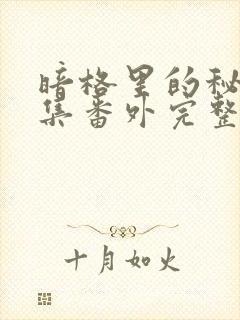 暗格里的秘
集番外完整
十月如火